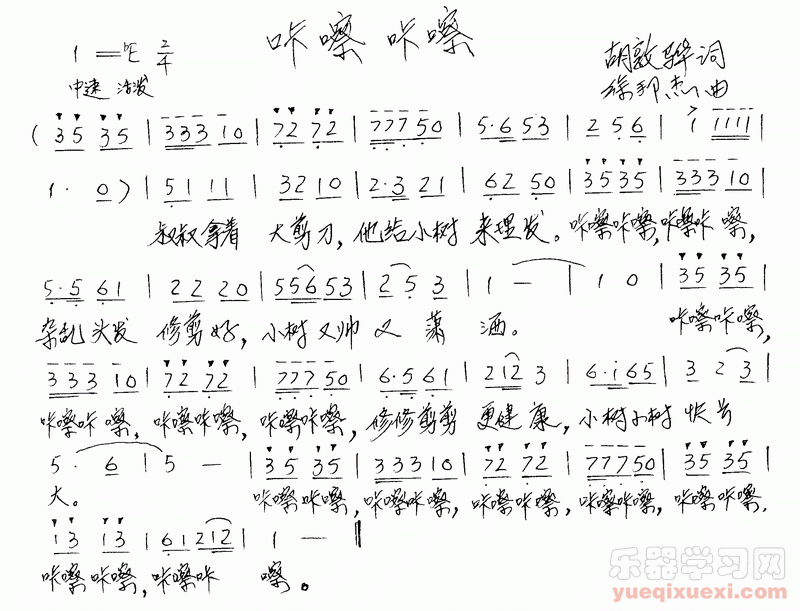 咔嚓咔嚓
1=♭E 2/4
中速 活泼
胡敦骅 词
徐邦杰 曲
( 35 35 | 333 10 | 72 72 | 777 50 | 5·6 53 | 2 56 | i iiii |
1· 0 ) | 51 11 | 32 10 | 2·3 21 | 62 50 | 35 35 | 333 10 |
叔叔拿着 大剪刀，他给小树 来理发。咔嚓咔嚓，咔嚓咔 嚓，
5·5 61 | 22 20 | 556 53 | 2 5 3 | 1 — | 1 0 | 35 35 |
杂乱头发 修剪好，小树又帅 又 潇 洒。 咔嚓咔嚓，
333 10 | 72 72 | 777 50 | 6·5 61 | 212 3 | 6·i 65 | 3 2 3 |
咔嚓咔 嚓，咔嚓咔嚓，咔嚓咔嚓，修修剪剪 更健 康，小树小树 快长
5· 6 | 5 — | 35 35 | 333 10 | 72 72 | 777 50 | 35 35 |
大。 咔嚓咔嚓，咔嚓咔嚓，咔嚓咔嚓，咔嚓咔嚓，咔嚓咔嚓，
i3 i3 | 61 212 | 1 — ‖
咔嚓咔嚓，咔嚓咔 嚓。
乐器学习网
yueqixuexi.com